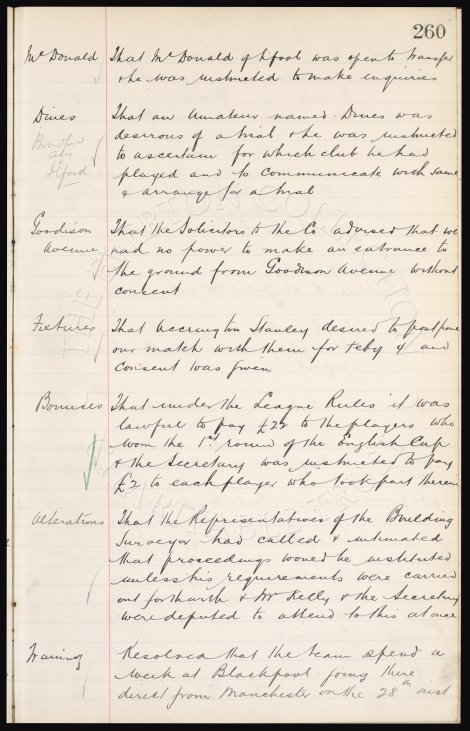 260
Mc Donald That Mc Donald of L'pool was open to transfer
& he was instructed to make inquiries
Dines That an Amateur named Dines was
desirous of a trial & he was instructed
to ascertain for which club he had
played and to communicate with same
& arrange for a trial
Ilford
Goodison That the Solicitors to the Co advised that we
Avenue had no power to make an entrance to
the ground from Goodison Avenue without
consent
Fixtures That Accrington Stanley desired to postpone
our match with them for Feby 4 and
consent was given
Bonuses That under the League Rules it was
lawful to pay £2 to the players who
won the 1st round of the English Cup
& the Secretary was instructed to pay
£2 to each player who took part therein
Alterations That the Representatives of the Building
Surveyor had called & intimated
that proceedings would be instituted
unless his requirements were carried
out forthwith & Mr Kelly & the Secretary
were deputed to attend to this at once
Training Resolved that the team spend a
week at Blackpool going there
direct from Manchester on the 28th inst